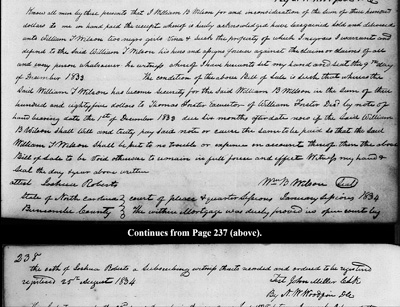 Know all men by these presents that I William B Wilson for and in consideration of the sum of three hundred
dollars to me in hand paid the receipt whereof is hereby acknowledged have bargained sold and delivered
unto William T Wilson two negro girls Vina & the property of which I warrant and
defend to the Said William T Wilson his heirs and assigns forever against the claim or claims of all
and every person whatsoever In witness whereof I have hereunto set my hand and seal this 9th day
of December 1833 The condition of the above Bill of Sale is such that whereas the
Said William T Wilson has become security for the Said William B Wilson in the Sum of three
hundred and eighty five dollars to Thomas Foster Executor of William Foster Decd by note of
hand bearing date the 1st of December 1833 due six months after date now if the Said William
B Wilson Shall well and truly pay said note or cause the same to be paid so that the Said
William T Wilson Shall be put to no trouble or expense on account thereof then the above
Bill of Sale to be Void otherwise to remain in full force and effect Witness my hand &
Seal the day & year above written
attest Joshua Roberts Wm B Wilson Seal
State of North Carolina } court of pleas & quarter Sessions January Sessions 1834
Buncombe County } the within Mortgage was duly proved in open court by
Continues from Page 237 (above).
238
the oath of Joshua Roberts a Subscribing witness thereto recorded and ordered to be registered
registered 25th August 1834 Test John Miller Clk
By N. W. Woodfin Dc